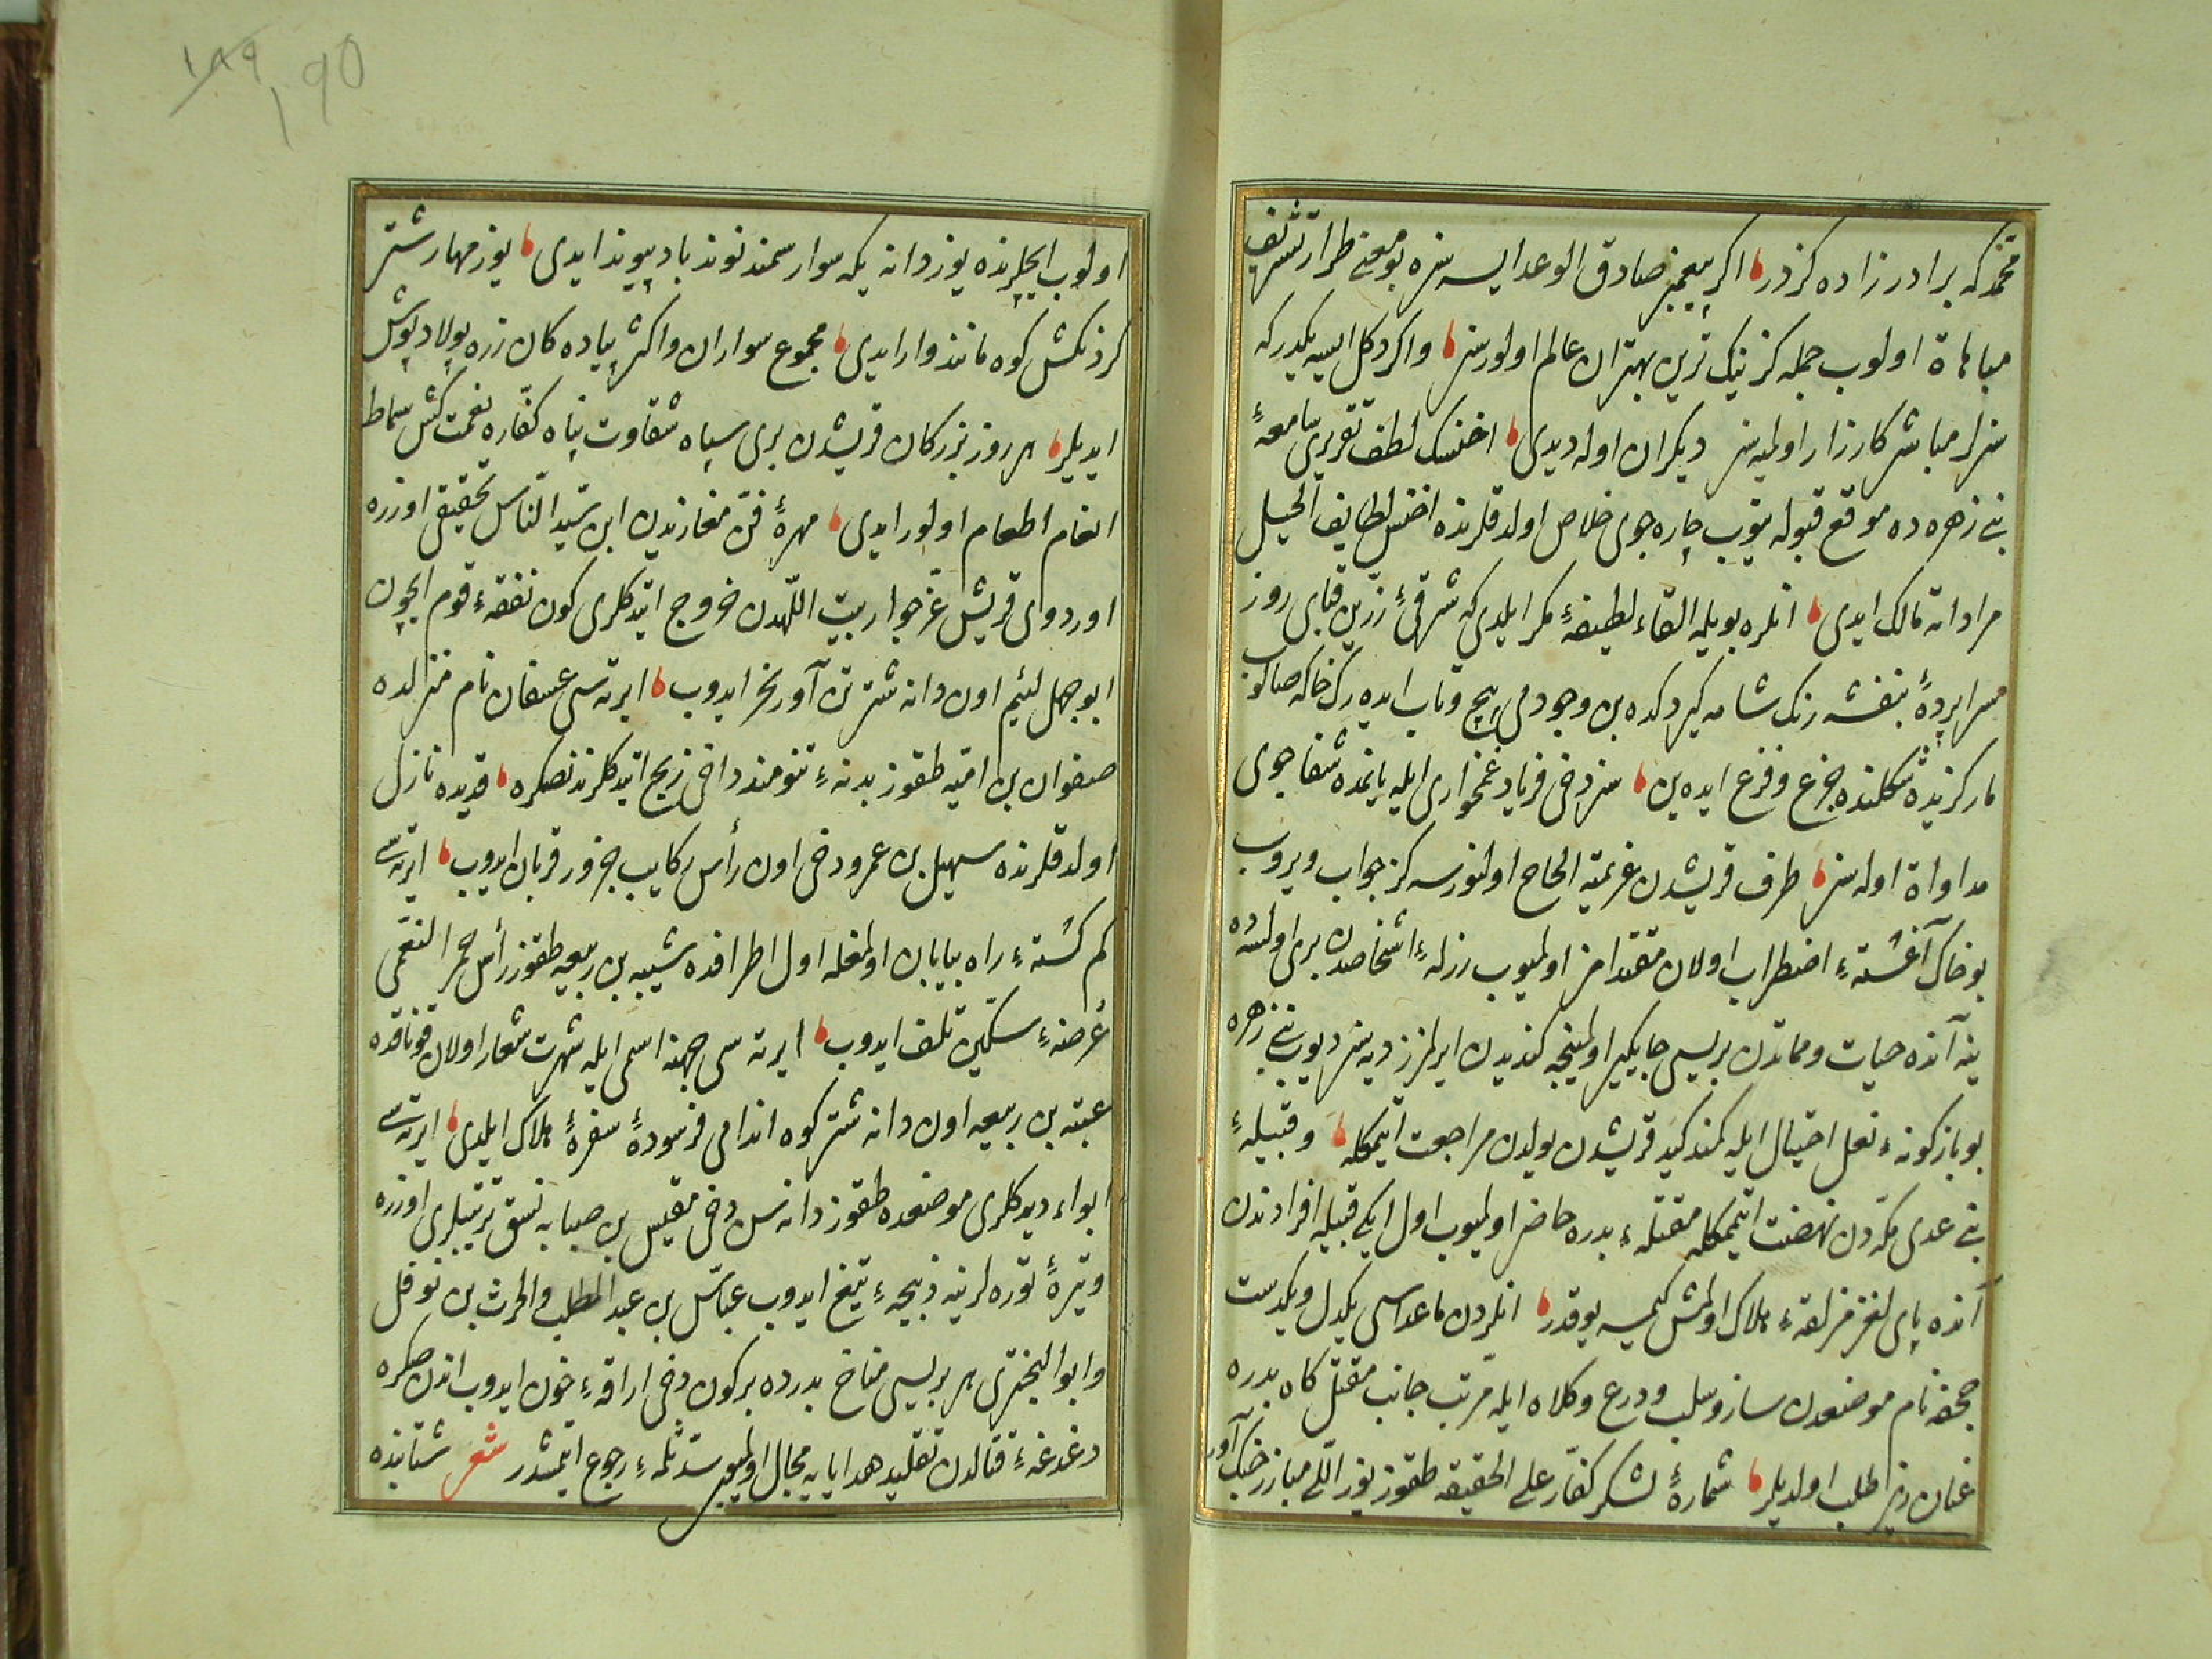 محمد كه برادر زاده كزدر اكر پيغمبر صادق الوعد ايسه سزه بو معنى طراز تشريف
مباهاة اولوب جمله كز نيك ترين بهتران عالم اولورسز واكر دكل ايسه يكدر كه
سزلر مباشر كارزار اولميه سز ديكران اوله ديدى اخنسك لطف تقريرى سامعهٔ
بنى زهره ده موقع قبوله يتوب چاره جوى خلاص اولدقلرنده اخنس لطايف الحيل
مراداته مالك ايدى انلره بويله القاء لطيفهٔ مكر ايلدى كه شرقئ زرين قباى روز
سراپردهٔ بنفشه رنك شامه كيردكده بن وجودمى پيچ وتاب ايده رك خاكه صالوب
مار كزيده شكلنده جزع وفزع ايده ين سز دخى فرياد غمخوارى ايله يانمده شفا جوى
مداواة اوله سز طرف قريشدن عزيمته الحاح اولنورسه كز جواب ويروب
بو خاك آغشتهٔ اضطراب اولان مقتدامز اولميوب رزلهٔ اشخاصدن برى اولسه ده
ينه آنده حيات ومماتدن بريسى جايكير اولمينجه كنديدن ايرلمزز ديه سز ديوب بنى زهره
بو بازكونه نعل احتيال ايله كمند كيد قريشدن يولدن مراجعت اتمكله وقبيلهٔ
بنى عدى مكه دن نهضت اتممكله مقتلهٔ بدره حاضر اولميوب اول ايكى قبيله افرادندن
آنده پاى لغز مزلقهٔ هلاك اولمش كيمسه يوقدر انلردن ماعداسى يكدل ويكدست
جحفه نام موضعدن ساز وسلب ودرع وكلاه ايله مرتب جانب مقتل كاه بدره
عنان ريز طلب اولديلر شمارهٔ لشكر كفار على الحقيقه طقوز يوز اللى مبارز جنك آور
اولوب ايچلرنده يوز دانه يكه سوار سمند نوند باد پيوند ايدى يوز مهار شتر
كردنكش كوه مانند وار ايدى مجموع سواران واكثر پياده كان زره پولاد پوش
ايديلر هر روز بزركان قريشدن برى سپاه شقاوت پناه كفاره نعمت كش سماط
انعام اطعام اولور ايدى مهرهٔ فن مغازيدن ابن سيد الناس تحقيقى اوزره
اوردوى قريش عز جوار بيت اللهدن خروج اتدكلرى كون نفقهٔ قوم ايچون
ابو جهل لئيم اون دانه شتر تن آور نحر ايدوب ايرتسى عسفان نام منزلده
صفوان بن اميه طقوز بدنهٔ تنومند داخى ذبح اتدكلرندنصكره قديده نازل
اولدقلرنده سهيل بن عمرو دخى اون رأس ركايب جزور قربان ايدوب ايرتسى
كم كشتهٔ راه بيابان اولمغله اول اطرافده شيبه بن ربيعه طقوز رأس حمر النعمى
عرضهٔ سكين تلف ايدوب ايرته سى جهنه اسمى ايله شهرت شعار اولان قوناقده
عتبه بن ربيعه اون دانه شتر كوه اندامى فرسودهٔ سفرهٔ هلاك ايلدى ايرتسى
ابواء ديدكلرى موضعده طقوز دانه سن دخى مقيس بن صبابه نسق ترتيبلرى اوزره
وتيرهٔ توره لرينه ذبيحهٔ تيغ ايدوب عباس بن عبد المطلب والحرث بن نوفل
وابو البخترى هر بريسى مناخ بدرده بر كون دخى اراقهٔ خون ايدوب اندن صكره
دغدغهٔ قتالدن تقليد هدايايه مجال اولميوب رجوع اتمشدر شعر شتابنده
190